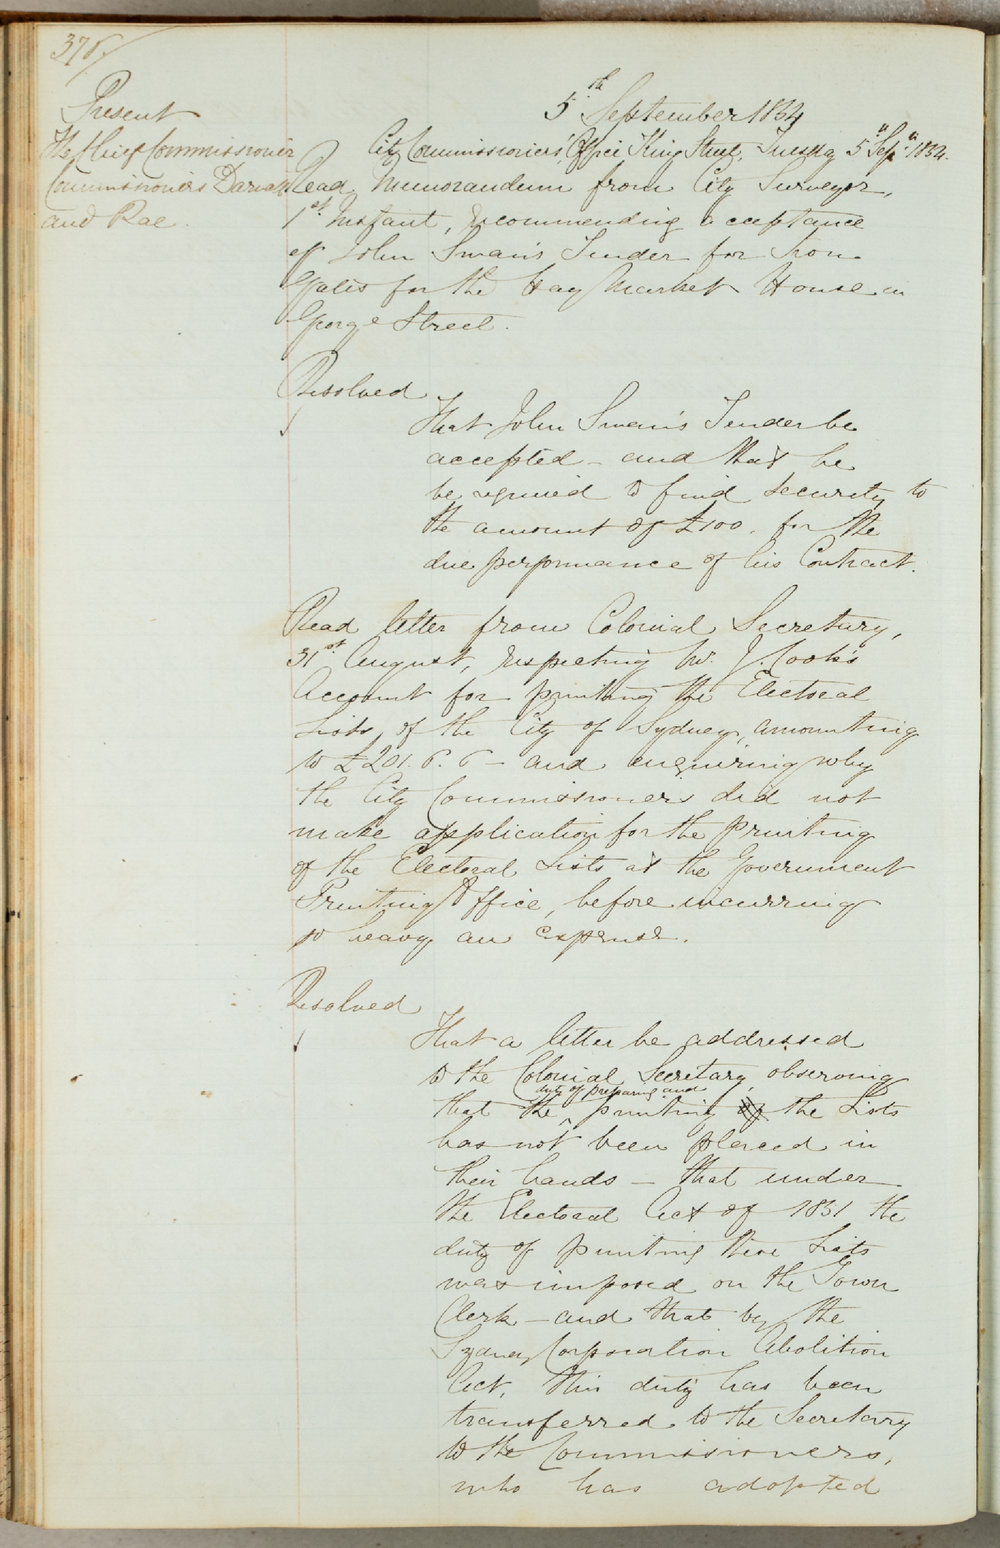 378
Present
The Chief Commissioner
Commissioners Darvall
and Rae.
5th September 1854
City Commissioners' Office King Street, Tuesday 5" Sep" 1854.
Read Memorandum from City Surveyor,
1st Instant, recommending acceptance
of John Swan's Tender for Iron
Gates for the Hay Market House in
George Street.
Resolved
That John Swan's Tender be
accepted - and that he
be required to find security to
the amount of £100. for the
due performance of his Contract.
Read letter from Colonial Secretary,
31st August, respecting Mr. J. Cook's
Account for printing the Electoral
Lists, of the City of Sydney, amounting
to £201.6.6 - and enquiring why
the City Commissioners did not
make application for the Printing
of the Electoral Lists at the Government
Printing Office, before incurring
so heavy an expense.
Resolved
That a letter be addressed
to the Colonial Secretary, observing
duty of preparing and
that the printing of the Lists
has not been placed in
their hands - that under
the Electoral Act of 1851 the
duty of printing these Lists
was imposed on the Town
Clerk - and that by the
Sydney Corporation Abolition
Act, this duty has been
transferred to the Secretary
to the Commissioners,
who has adopted